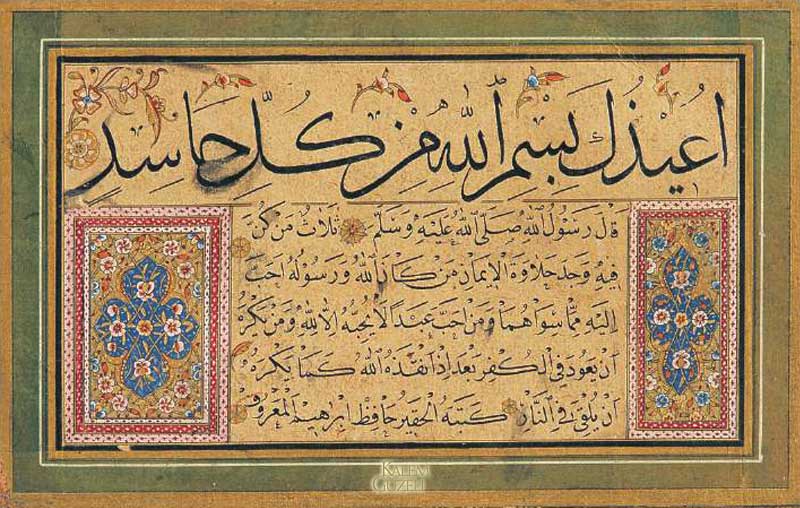 اُعِيذُكَ بِسْمِ اللّٰهِ مِنْ كُلِّ حَاسِدٍ
قَالَ رَسُولُ اللّٰهِ صَلَّى اللّٰهُ عَلَيْهِ وَسَلَّمَ ثَلَاثٌ مَنْ كُنَّ
فِيهِ وَجَدَ حَلَاوَةَ الْاِيمَانِ مَنْ كَانَ اللّٰهُ وَرَسُولُهُ اَحَبَّ
اِلَيْهِ مِمَّا سِوَاهُمَا وَمَنْ اَحَبَّ عَبْدًا لَا يُحِبُّهُ اِلَّا لِلّٰهِ وَمَنْ يَكْرَهُ
اَنْ يَعُودَ فِي الْكُفْرِ بَعْدَ اِذْ اَنْقَذَهُ اللّٰهُ كَمَا يَكْرَهُ
اَنْ يُلْقٰى فِي النَّارِ كَتَبَهُ الْحَقِيرُ حَافِظْ اِبْرَاهِيمُ الْمَعْرُوفُ
KALEM
GÜZELİ